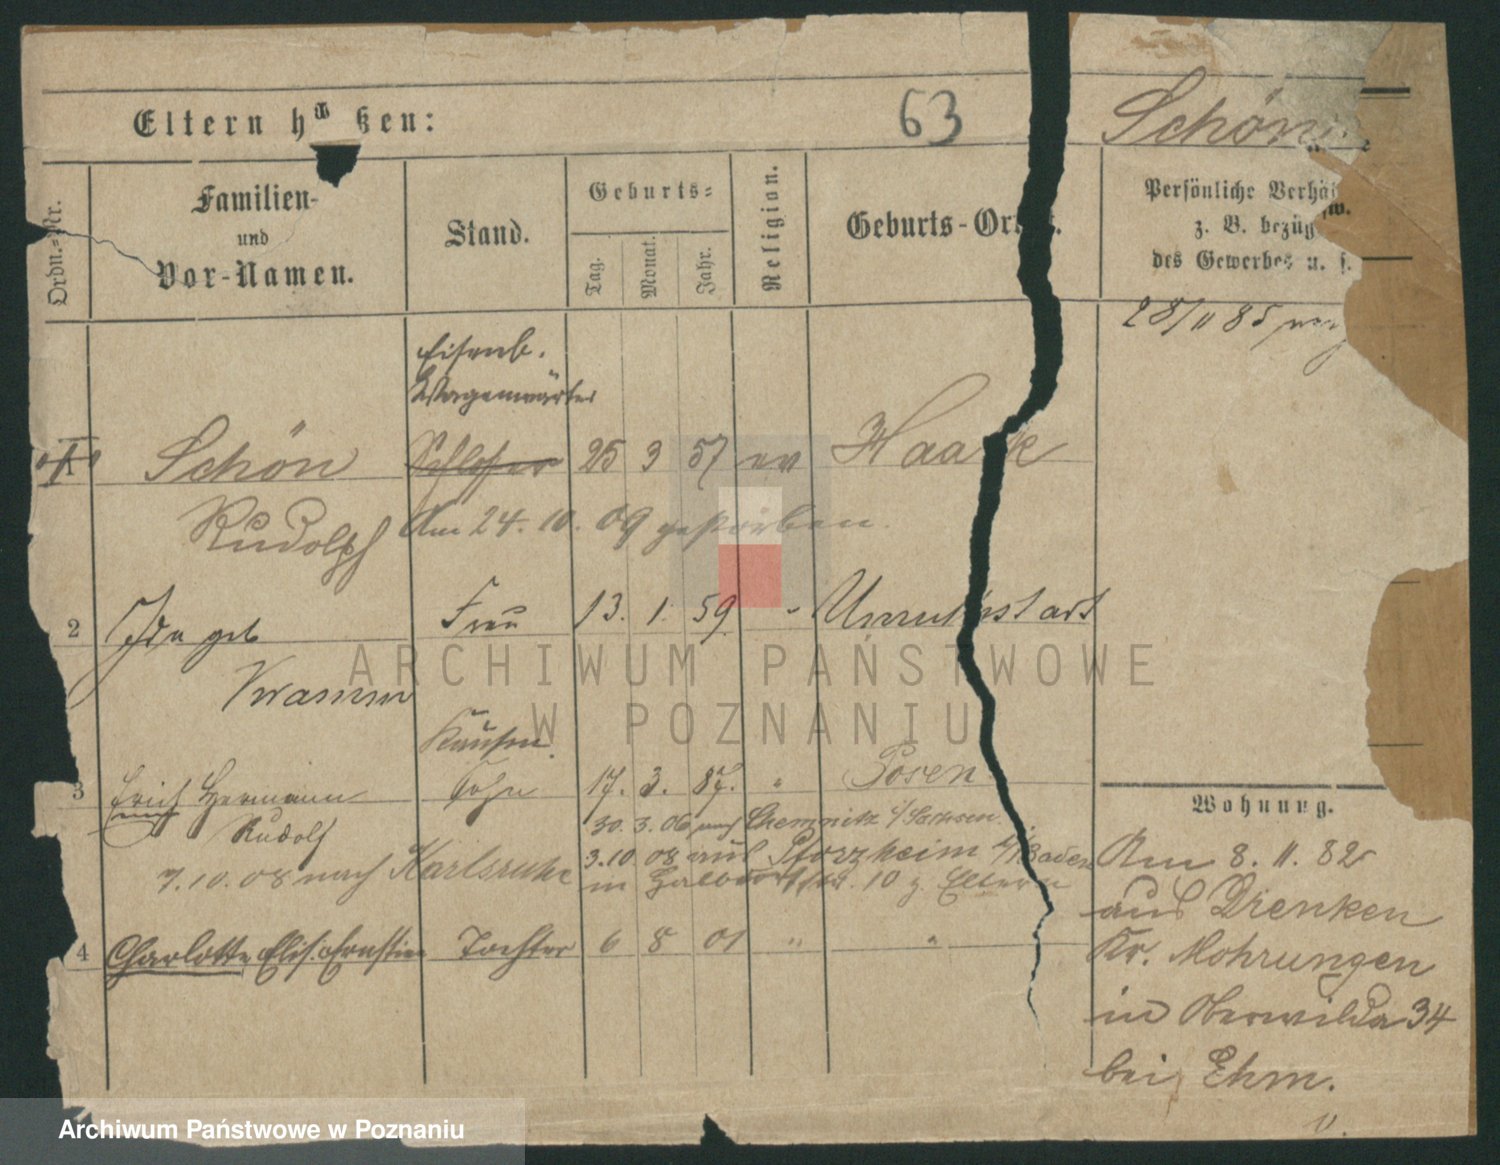 Eltern h ßen:
63
Schön
Ordn.-Nr.
Familien-
und
Vor-Namen.
Stand.
Geburts-
Tag.
Monat.
Jahr.
Religion.
Geburts-Ort
Persönliche Verhäl
z. B. bezüg
des Gewerbes u. s.
28/11 85
Eisenb.
Wagenwärter
1 Schön Schlosser 25 3 57 ev Haack
Rudolph Am 24. 10. 09 gestorben.
2 Ida geb Frau 13. 1. 59. " Unruhstadt
Kramm
Kaufm.
3 Erich Hermann Sohn 17. 3. 87. " Posen
Rudolf
30. 3. 06 nach Chemnitz i/Sachsen
3.10. 08 aus Pforzheim i/Baden
7.10.08 nach Karlsruhe
in 10 z. Eltern
4 Charlotte Elis. Ernstine Tochter 6 8 01 " "
Wohnung.
Am 8. 11. 82
aus Drenken
Kr. Mohrungen
in Oberwilda 34
bei Ehm.
ARCHIWUM PAŃSTWOWE
W POZNANIU
Archiwum Państwowe w Poznaniu